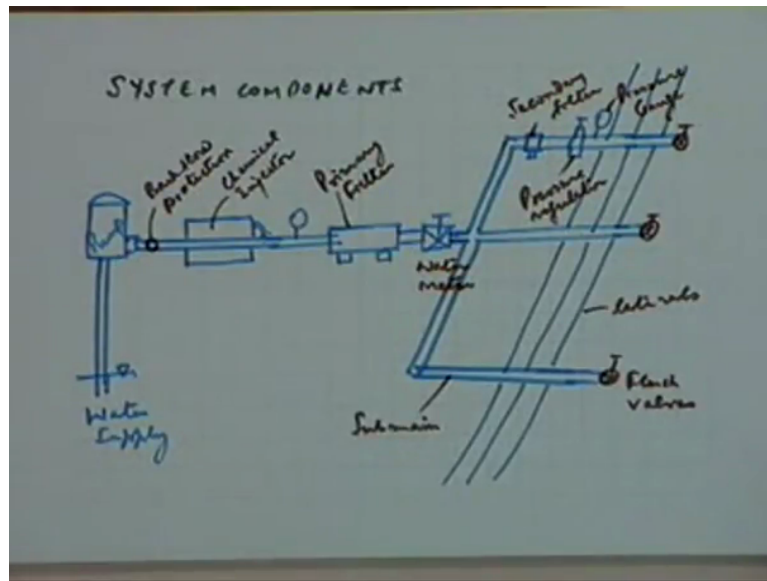 SYSTEM COMPONENTS
Backflow
protection
Chemical
Injector
Primary
Filter
Secondary
filter
Pressure
Gauge
Pressure
regulator
Water
Meter
laterals
Flush
valves
Submain
Water
Supply